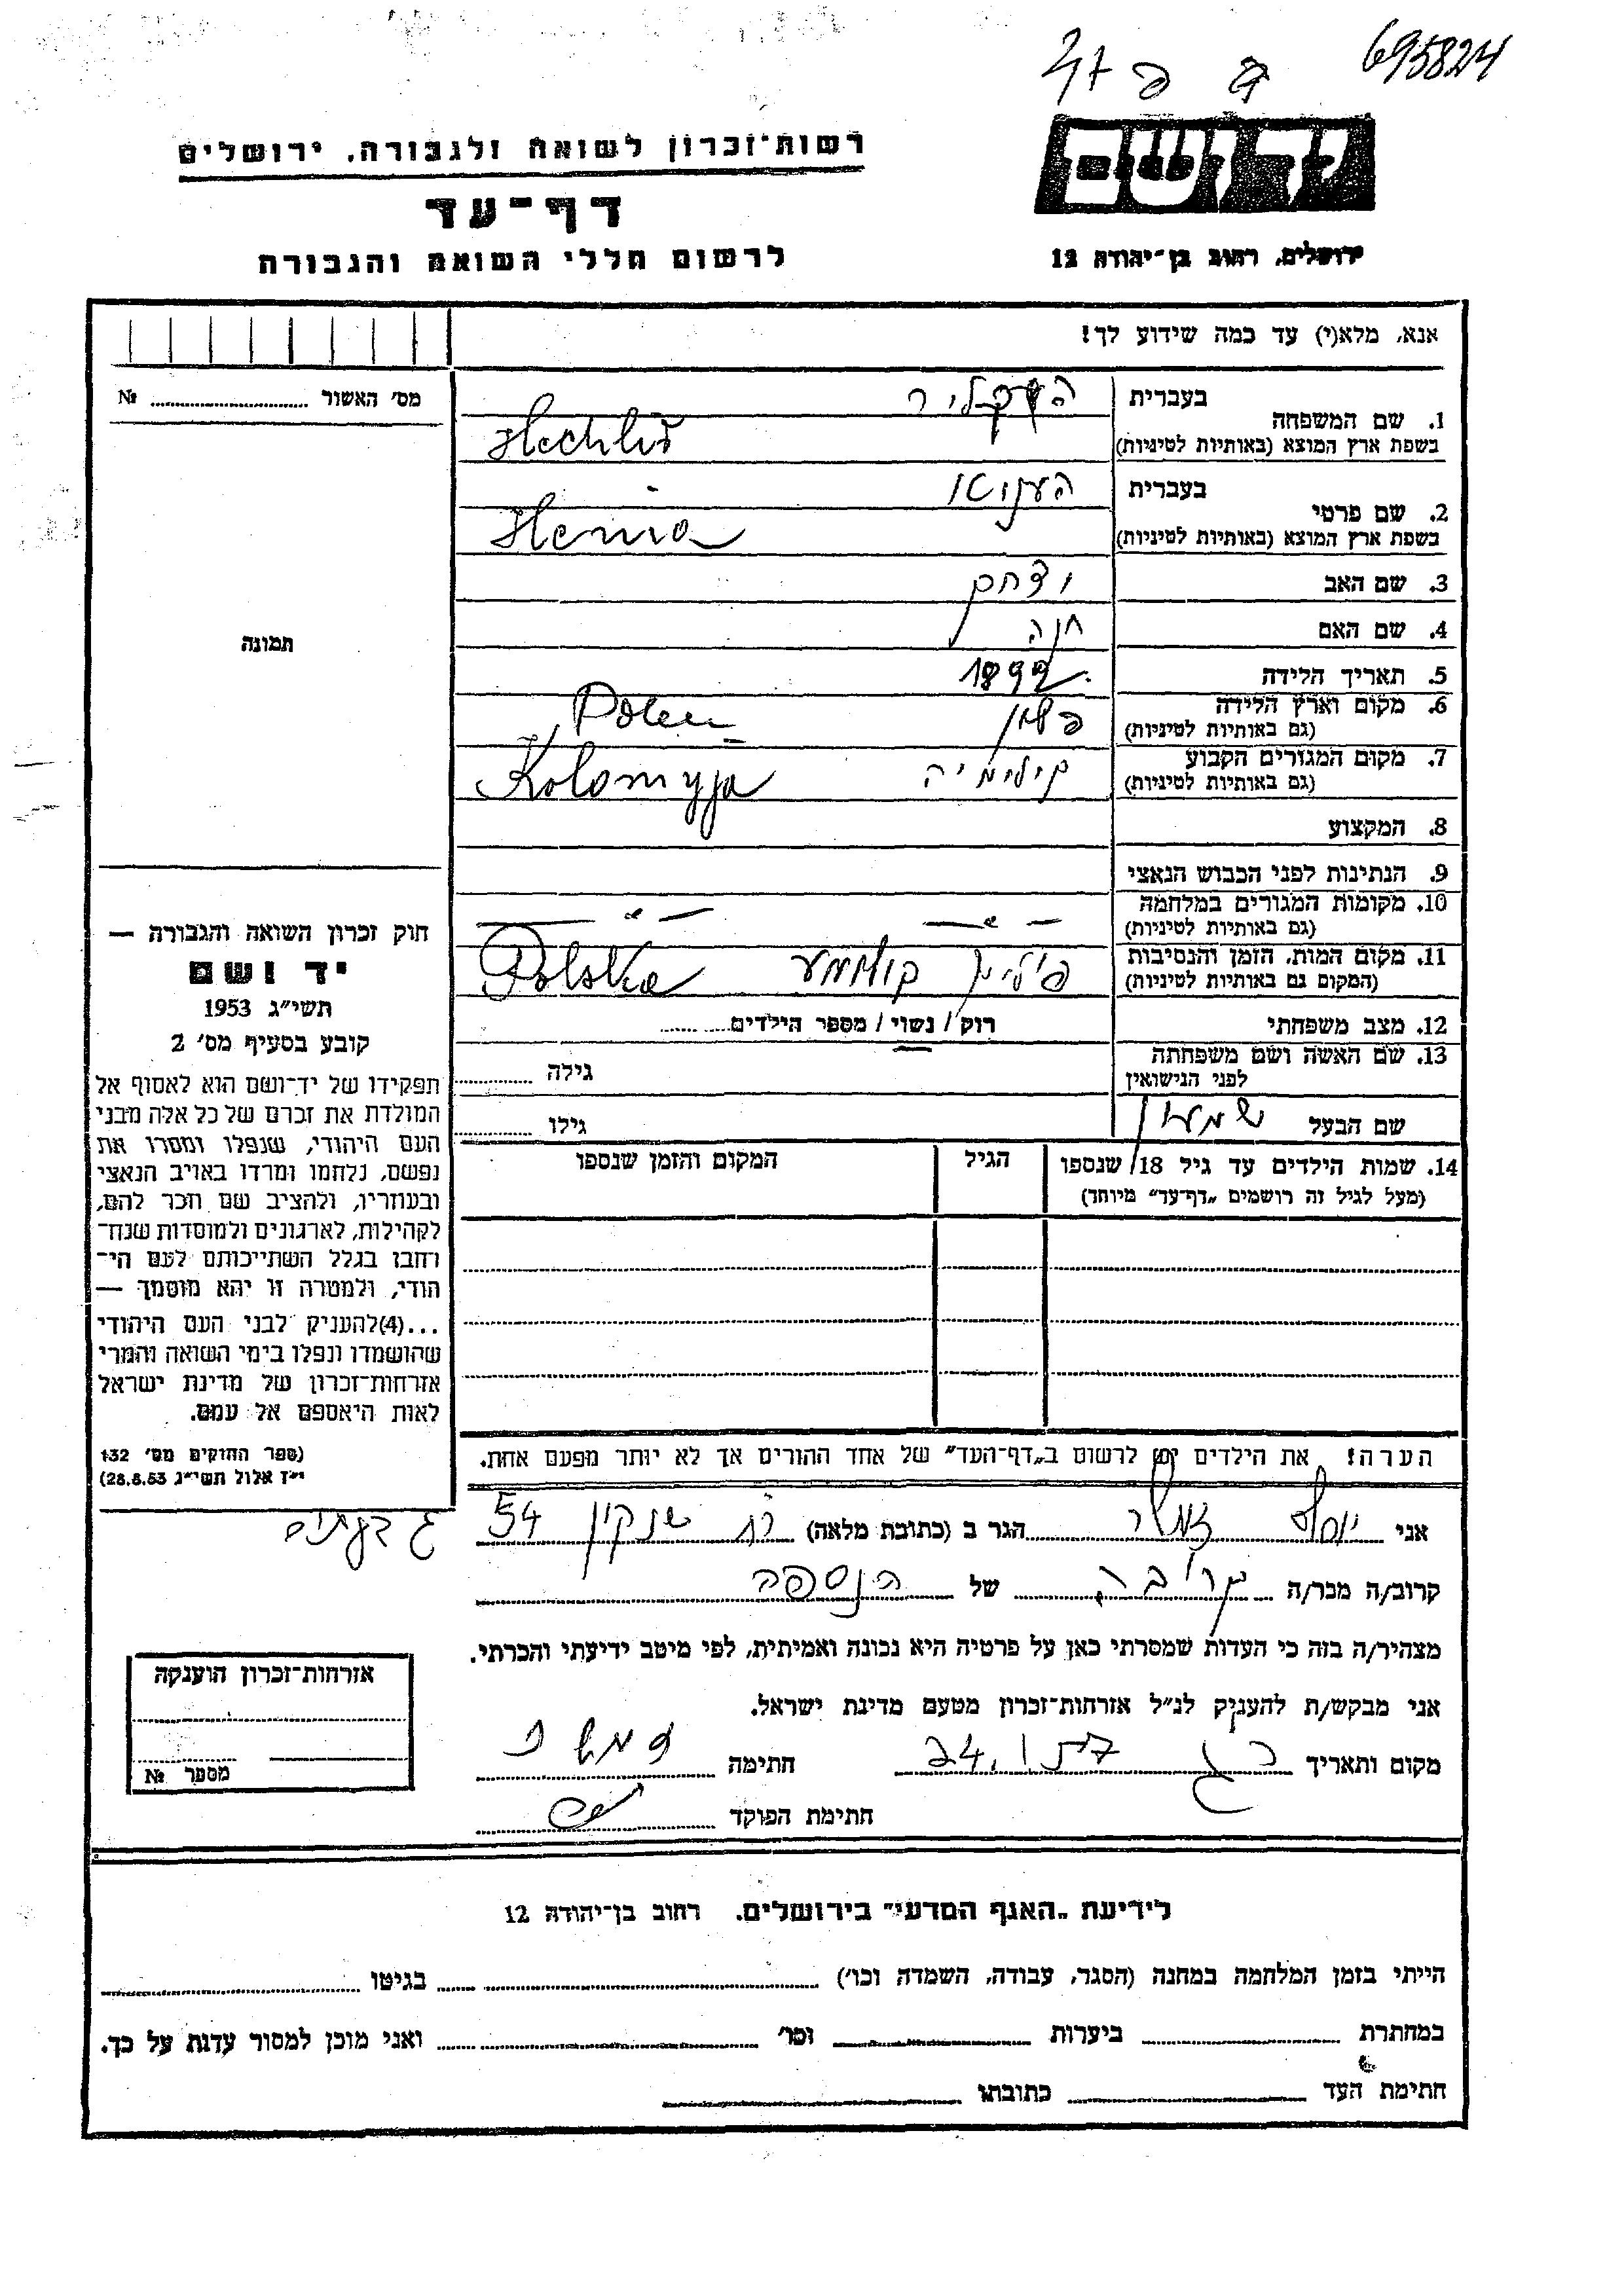 695824
יד ושם
רשות־זכרון לשואה ולגבורה, ירושלים
דף־עד
לרשום חללי השואה והגבורה
ירושלים, רחוב בן־יהודה 12
אנא, מלא(י) עד כמה שידוע לך!
מס' האשור № 
1. שם המשפחה
בעברית
בשפת ארץ המוצא (באותיות לטיניות)
2. שם פרטי
בעברית
בשפת ארץ המוצא (באותיות לטיניות) Henia
3. שם האב
4. שם האם חנה
5. תאריך הלידה
6. מקום וארץ הלידה פולין Polen
(גם באותיות לטיניות)
7. מקום המגורים הקבוע Kolomyja
(גם באותיות לטיניות)
8. המקצוע
9. הנתינות לפני הכבוש הנאצי
10. מקומות המגורים במלחמה — " — — " —
(גם באותיות לטיניות)
11. מקום המות, הזמן והנסיבות Polska
(המקום גם באותיות לטיניות)
12. מצב משפחתי רווק / נשוי / מספר הילדים
13. שם האשה ושם משפחתה גילה
לפני הנישואין
שם הבעל שמעון גילו
14. שמות הילדים עד גיל 18 שנספו הגיל המקום והזמן שנספו
(מעל לגיל זה רושמים "דף־עד" מיוחד)
הערה! את הילדים יש לרשום ב"דף־העד" של אחד ההורים אך לא יותר מפעם אחת.
תמונה
חוק זכרון השואה והגבורה —
יד ושם
תשי"ג 1953
קובע בסעיף מס' 2
תפקידו של יד־ושם הוא לאסוף אל
המולדת את זכרם של כל אלה מבני
העם היהודי, שנפלו ומסרו את
נפשם, נלחמו ומרדו באויב הנאצי
ובעוזריו, ולהציב שם וזכר להם,
לקהילות, לארגונים ולמוסדות שנח־
רבו בגלל השתייכותם לעם הי־
הודי, ולמטרה זו יהא מוסמך —
...(4) להעניק לבני העם היהודי
שהושמדו ונפלו בימי השואה והמרי
אזרחות־זכרון של מדינת ישראל
לאות היאספם אל עמם.
(ספר החוקים מס' 132
י"ז אלול תשי"ג 28.8.53)
אני יוסף הגר ב (כתובת מלאה) רח שנקין 54
גבעתיים
קרוב/ה מכר/ה קרובה של הנספה
מצהיר/ה בזה כי העדות שמסרתי כאן על פרטיה היא נכונה ואמיתית, לפי מיטב ידיעתי והכרתי.
אני מבקש/ת להעניק לנ"ל אזרחות־זכרון מטעם מדינת ישראל.
מקום ותאריך חתימה
חתימת הפוקד
אזרחות־זכרון הוענקה
מספר №
לידיעת "האגף המדעי" בירושלים, רחוב בן־יהודה 12
הייתי בזמן המלחמה במחנה (הסגר, עבודה, השמדה וכו') בגיטו
במחתרת ביערות וכו' ואני מוכן למסור עדות על כך.
חתימת העד כתובתו